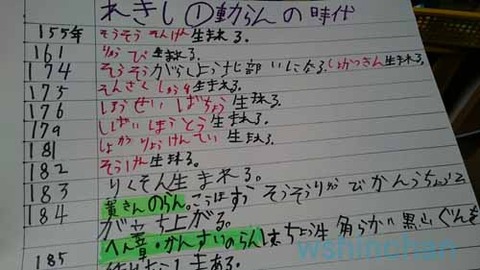 れきし①動らんの時代
155年 そうそう そんけん生まれる.
161 りゅうび生まれる.
174 そうそうがらくよう北部いになる.しょかつきん生まれる.
175 そんさく しゅうゆ生まれる.
176 しょうせい ばちょう 生まれる.
179 しばい ほうとう 生まれる.
181 しょかつりょう けんてい 生まれる.
182 そんけん生まれる.
183 りくそん生まれる.
184 黄きんのらん。こうほすう そうそうりゅうびかんうちょうひ
が立ち上がる。
185 へん章・かんすいのらん ちょう牛角らが黒山ぐんを
wshinchan